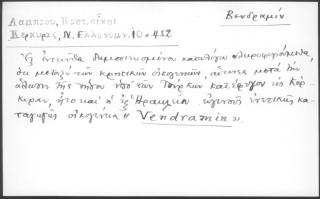 Λαμπρου, Κρητ. οἶκοι
Κερκυρας, Ν. Ελληνομν. 10 σ. 452
Βενδραμίν
Ἐν τῷ ἐντεῦθα δημοσιευομένῳ καταλόγῳ πληροφορούμεθα,
ὅτι μεταξὺ τῶν κρητικῶν οἰκογενειῶν, αἵτινες μετὰ τὴν
ἅλωσιν τῆς νήσου ὑπὸ τῶν Τούρκων κατέφυγον εἰς Κέρ-
κυραν, ἦτο καὶ ἡ ἐξ Ἡρακλείου ἑνετικῆς κα-
ταγωγῆς οἰκογένεια " Vendramin ".